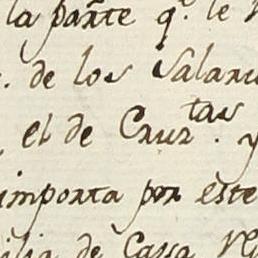 la parte q.e le
de los Salari
el de Cruz.tas y
importa por este
de Casa